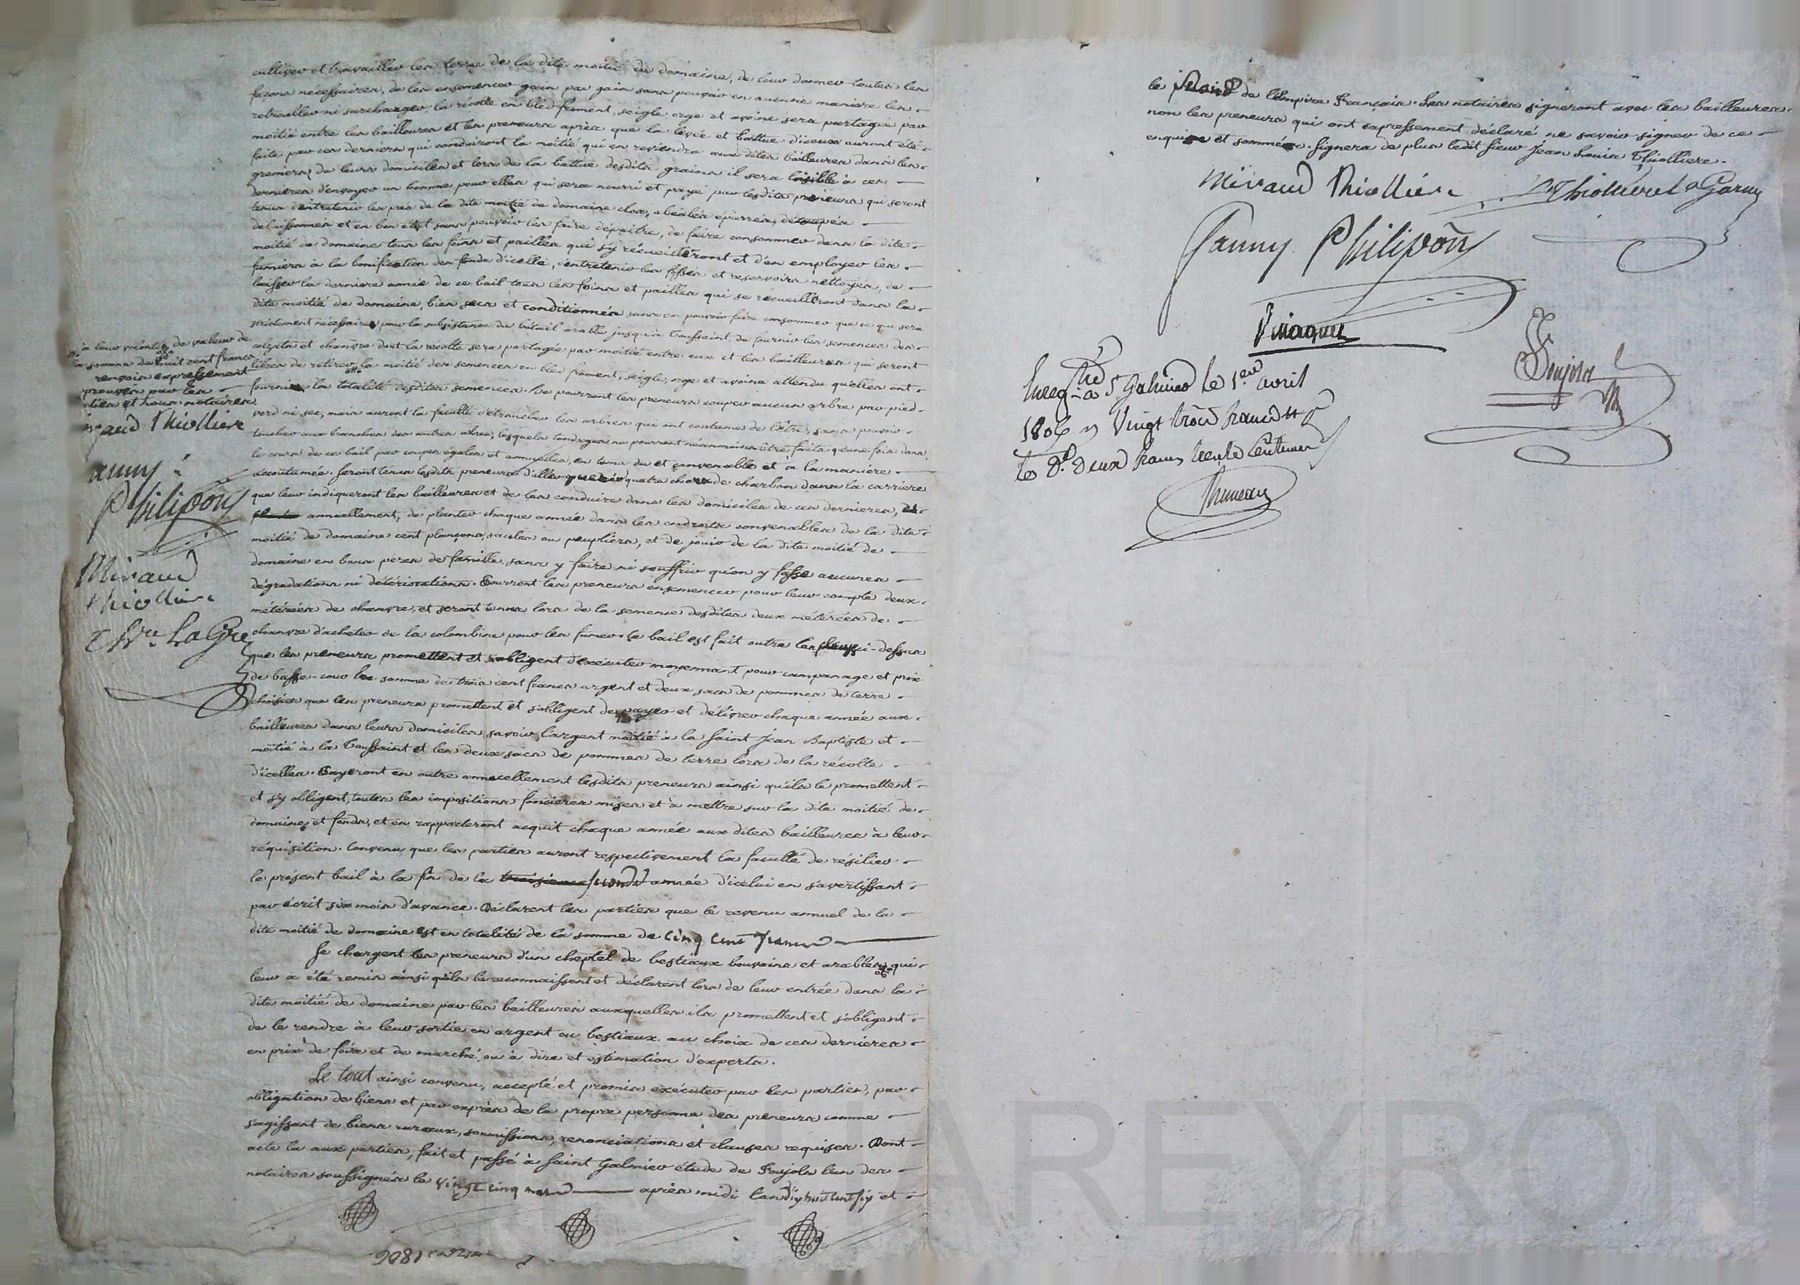 cultiver et travailler les terres de la dite moitié du domaine, de leur donner toutes les
façons nécessaires, de les ensemencer grain par grain sans pouvoir en aucune manière les
retroubler ni surcharger, la récolte en bled froment, seigle orge et avoine sera partagée par
moitié entre les bailleures et les preneurs après que la levée et battue d'iceux auront été
faite par ces derniers qui conduiront la moitié qui en reviendra aux dites bailleures dans les
greniers de leurs domiciles et lors de la battue desdits grains il sera loisible à ces
dernières d'envoyer un homme pour elles qui sera nourri et payé par lesdits preneurs qui seront
tenus d'entretenir les prés de la dite moitié de domaine clos, abéalés épierrés, détaupés
débuissonnés et en bon état sans pouvoir les faire dépaitre, de faire consommer dans la dite
moitié de domaine tous les foins et pailles qui s'y récueilleront et d'en employer les
fumiers à la bonification des fonds d'icelle, d'entretenir les fossés et reservoirs nettoyés, de
laisser la derniere année de ce bail tous les foins et pailles qui se recueilliront dans la
dite moitié de domaine, bien secs et conditionnés sans en pouvoir faire consommer que ce qui sera
strictement nécessaire pour la subsistance du bétail arable jusqu'à Toussaint, de fournir les semences des
colzats et chanvre dont la récolte sera partagée par moitié entre eux et les bailleures qui seront
libres de retirer la moitié des semences en bled froment, seigle, orge et avoine attendu qu'elles ont
fournies la totalité desdites semences. Ne pourront les preneurs couper aucun arbre par pied
verd ni sec, mais auront la faculté d'étrancher les arbres qui ont coutume de l'être, sans pouvoir
toucher aux branches des autres arbres, lesquels tondages ne pourront néanmoins être faits qu'une fois dans
le cours de ce bail par coupes égales et annuelles, en tems du et convenable et à la manière
accoutumée. Seront tenus lesdits preneurs d'aller querir quatre chars de charbon dans la carriere
que leur indiqueront les bailleures et de les conduire dans les domiciles de ces dernieres,
annuellement, de planter chaque année dans les endroits convenables de la dite
moitié de domaine cent plançons, saules ou peupliers, et de jouir de la dite moitié de
domaine en bons peres de famille, sans y faire ni souffrir qu'on y fasse aucunes
dégradations ni détériorations. Pourront les preneurs ensemencer pour leur compte deux
métérées de chanvre, et seront tenus lors de la semence desdites deux métérées de
chanvre d'acheter de la colombine pour les fumer. Ce bail est fait outre les ci-dessus
que les preneurs promettent et s'obligent d'exécuter moyennant pour campanage et prix
de basse-cour la somme de trois cent francs argent et deux sacs de pommes de terre
choisies que les preneurs promettent et s'obligent de payer et délivrer chaque année aux
bailleures dans leurs domiciles, savoir, l'argent moitié à la Saint Jean Baptiste et
moitié à la Toussaint et les deux sacs de pommes de terre lors de la récolte
d'icelles. Payeront en outre annuellement lesdits preneurs ainsi qu'ils le promettent
et s'y obligent, toutes les impositions foncieres mises et à mettre sur la dite moitié de
domaine et fonds, et en rapporteront acquit chaque année aux dites bailleures à leur
réquisition. Convenu que les parties auront respectivement la faculté de résilier
le présent bail à la fin de la troisieme seconde année d'icelui en s'avertissant
par écrit six mois d'avance. Déclarent les parties que le revenu annuel de la
dite moitié de domaine est en totalité de la somme de cinq cent francs
Se chargent les preneurs d'un cheptel de bestiaux bouvains et arables qui
leur a été remis ainsi qu'ils le reconnaissent et déclarent lors de leur entrée dans la
dite moitié de domaine par les bailleures auxquelles ils promettent et s'obligent
de le rendre à leur sortie en argent ou bestiaux au choix de ces dernieres
en prix de foire et de marché, ou à dire et estimation d'experts.
Le tout ainsi convenu, accepté et promis exécuter par les parties, par
obligation de biens et par exprès de la propre personne des preneurs comme
s'agissant de biens ruraux, soumissions, renonciations et clauses requises. Dont
acte lu aux parties, fait et passé à Saint Galmier étude de Pujols l'un des
notaires soussignés le vingt cinq mars après midi l'an dix huit cent six et
à leur volonté, de valeur de
la somme de huit cent francs
renvoi expressement
approuvé par les
parties et nous notaires
Miraud Thiollière
fanny
Philipon
Miraud
Thiollière
le second de l'Empire français. Les notaires signeront avec les bailleures
non les preneurs qui ont expressement déclaré ne savoir signer de ce
enquis et sommés. Signera de plus ledit sieur Jean Louis Thiolliere.
Miraud Thiollière
fanny Philipon
Enreg.tré à S.t Galmier le 1.er avril
1806 Vingt trois francs
le d.e deux francs trente centimes
1806
CHAREYRON